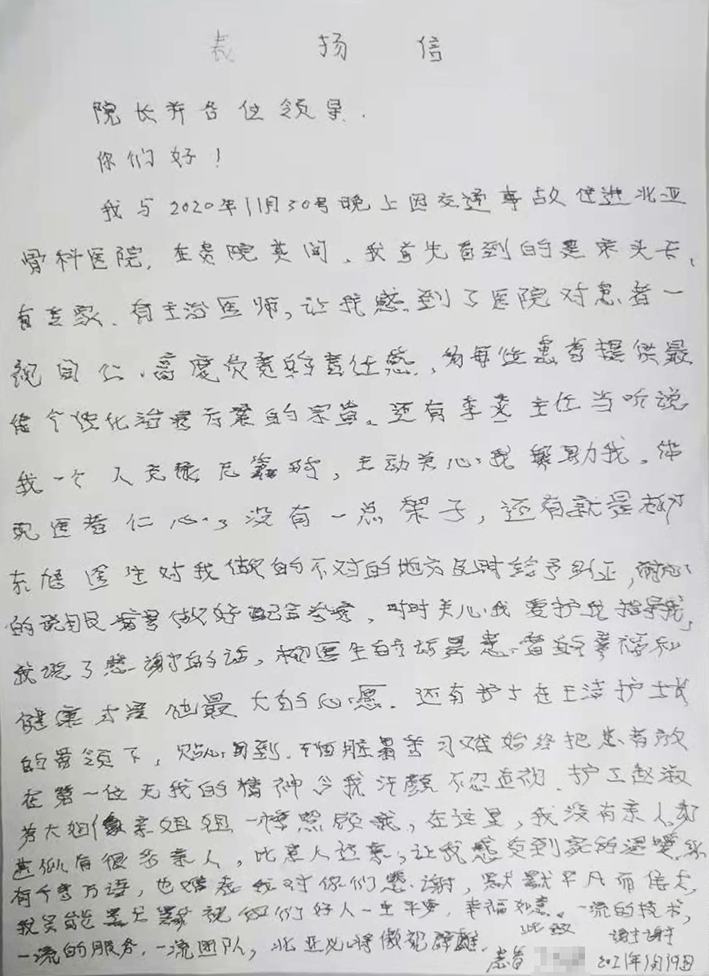 表 扬 信
院长并各位领导.
你们好！
我与2020年11月30号晚上因交通事故住进北亚
骨科医院，在贵院其间、我首先看到的是床头卡、
有专家、有主治医师，让我感到了医院对患者一
视同仁、高度负责的责任感、为每位患者提供最
佳个性化治疗方案的宗旨。还有李 主任当听说
我一个人 时，主动关心我帮助我。体
现医者仁心，没有一点架子，还有就是柳
东旭医生对我做的不对的地方及时给予纠正，耐心
的说服 做好配合 ，时时关心我爱护我指导我，
我说了感谢的话，柳医生的 是患者的幸福和
健康才是他最大的心愿. 还有护士在王洁护士长
的带领下，贴心周到. 不怕脏累苦 难始终把患者放
在第一位无我的精神令我汗颜不忍直视. 护工赵淑
芳大姐像亲姐姐一样照顾我，在这里，我没有亲人却
好似有很多亲人，比亲人还亲，让我感受到家的温暖，
有千言万语，也难表我对你们感谢，默默平凡而伟大，
我只能 默祝你们好人一生平安，幸福如意。一流的技术，
一流的服务. 一流团队，北亚必将傲视群雄. 此致 谢谢
患者 2021年1月19日